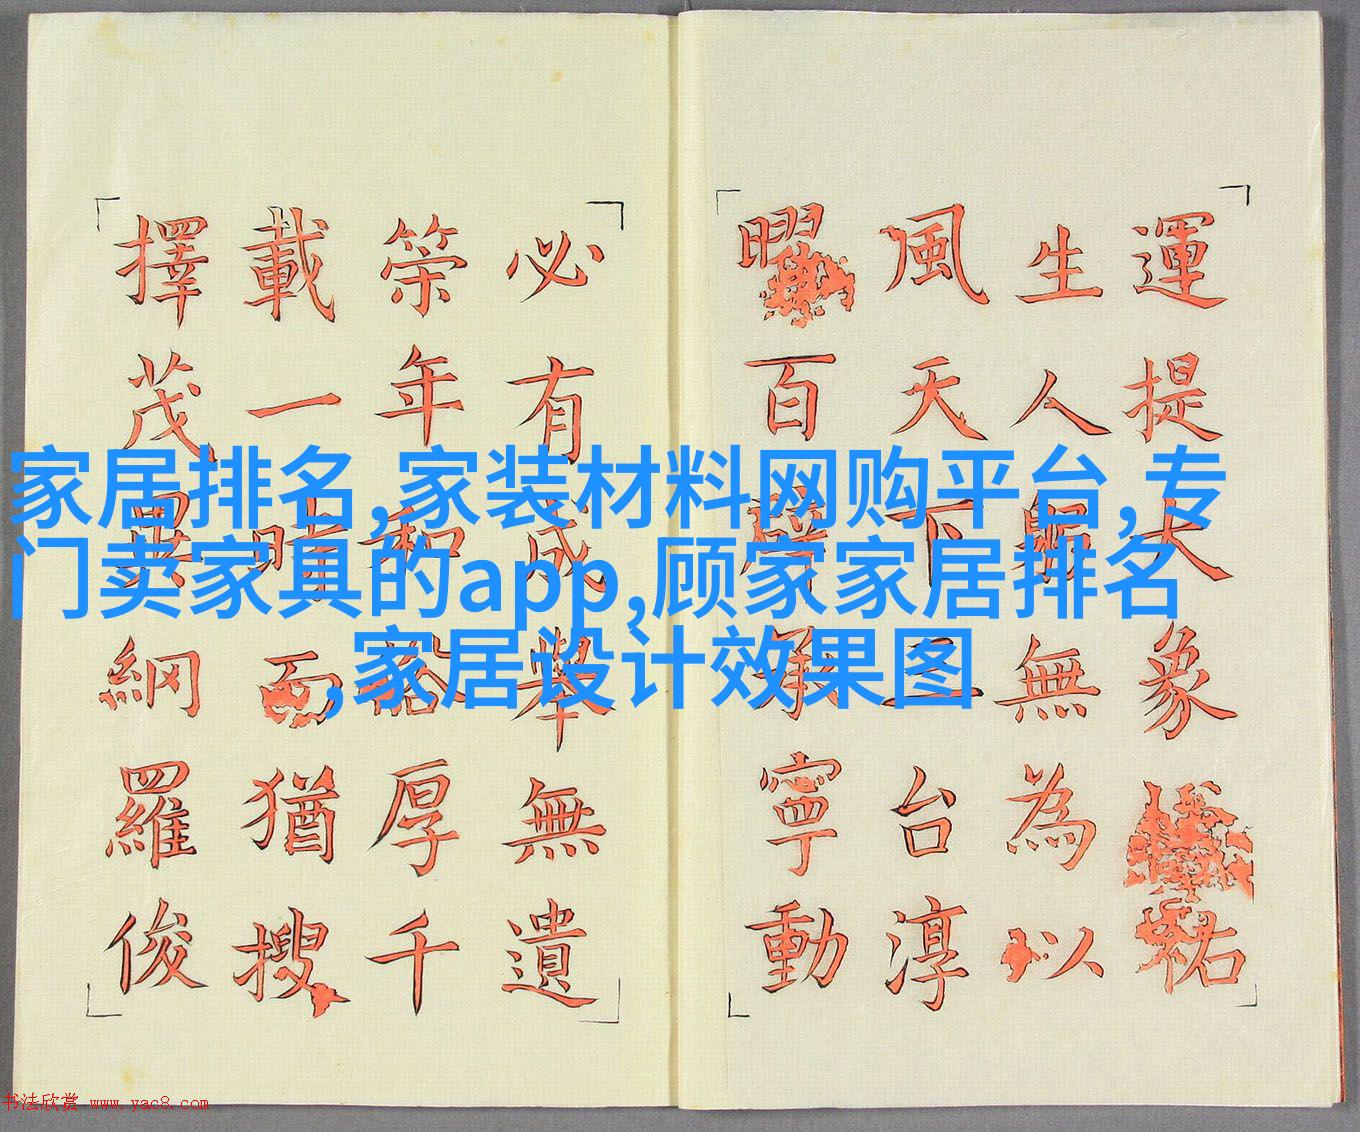 運提大象祐
生人無為以
風天下三台淳
曜百辟承寧動
必有成舉無遺
筞年和厚千
載一時而猶搜
擇茂異網羅俊
家居排名,家装材料网购平台,专
门卖家具的app,顾家家居排名
,家居设计效果图
书法欣赏 www.yac8.com